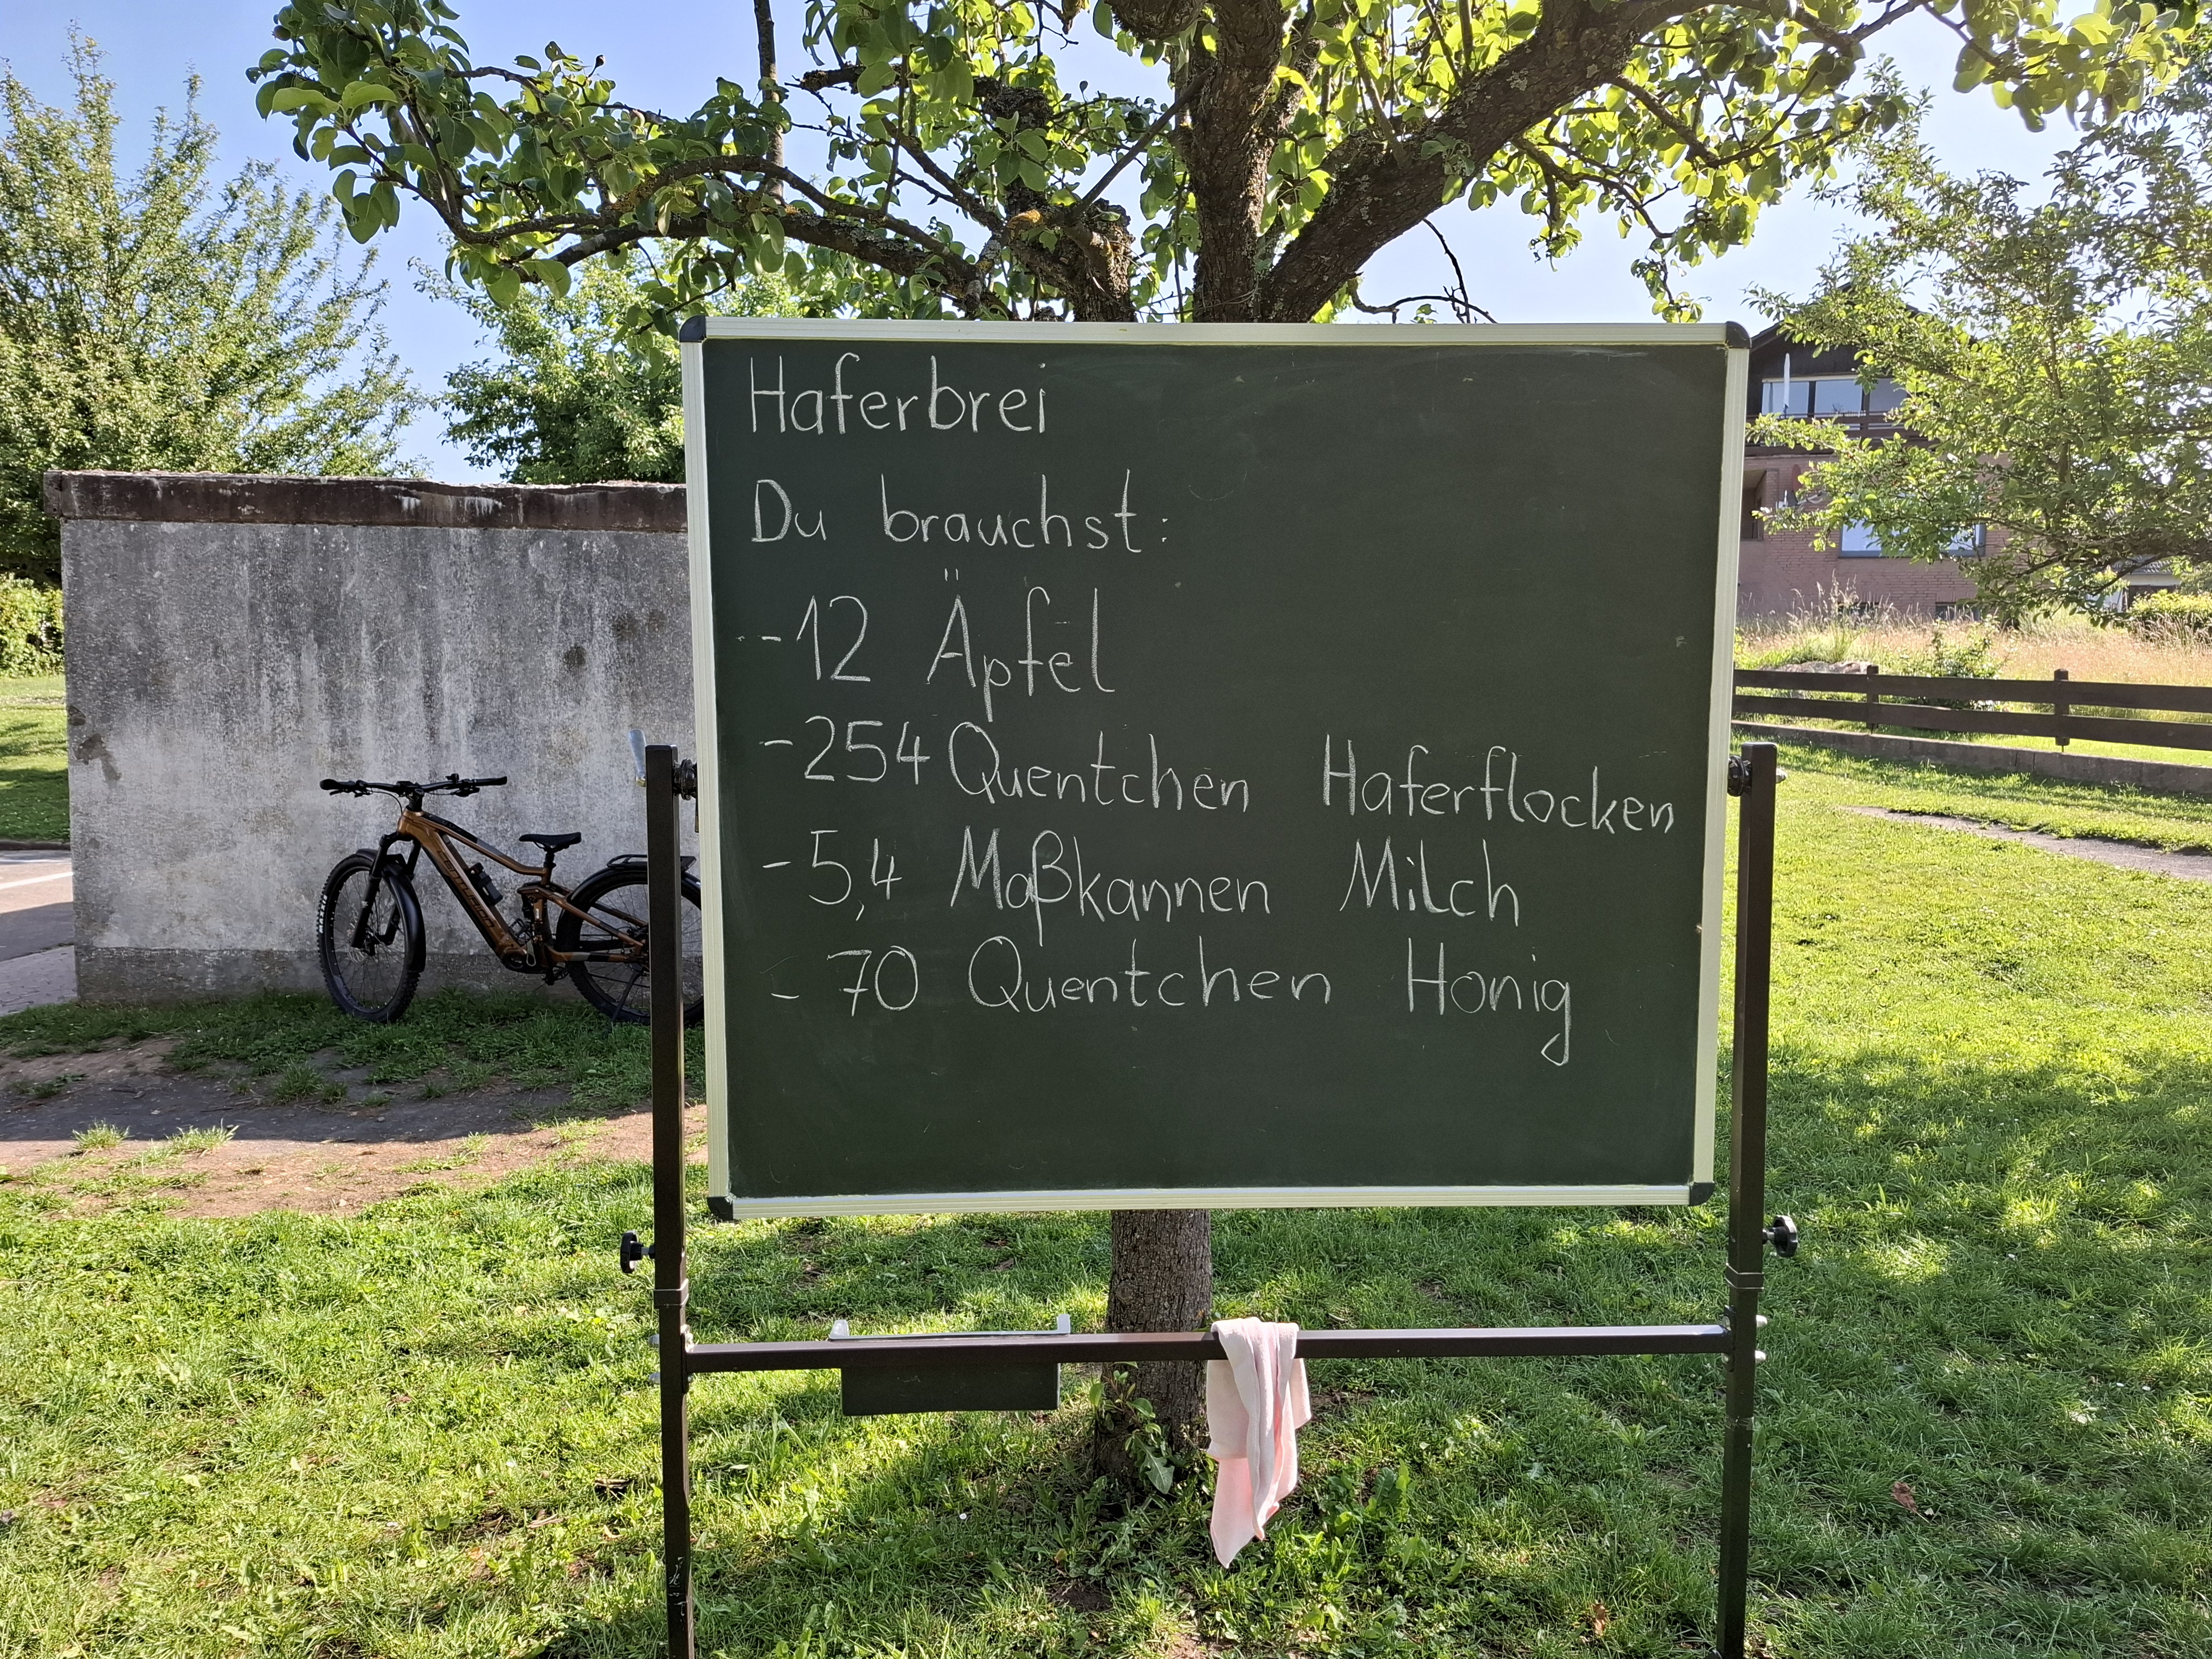 Haferbrei
Du brauchst:
- 12 Äpfel
- 254 Quentchen Haferflocken
- 5,4 Maßkannen Milch
- 70 Quentchen Honig